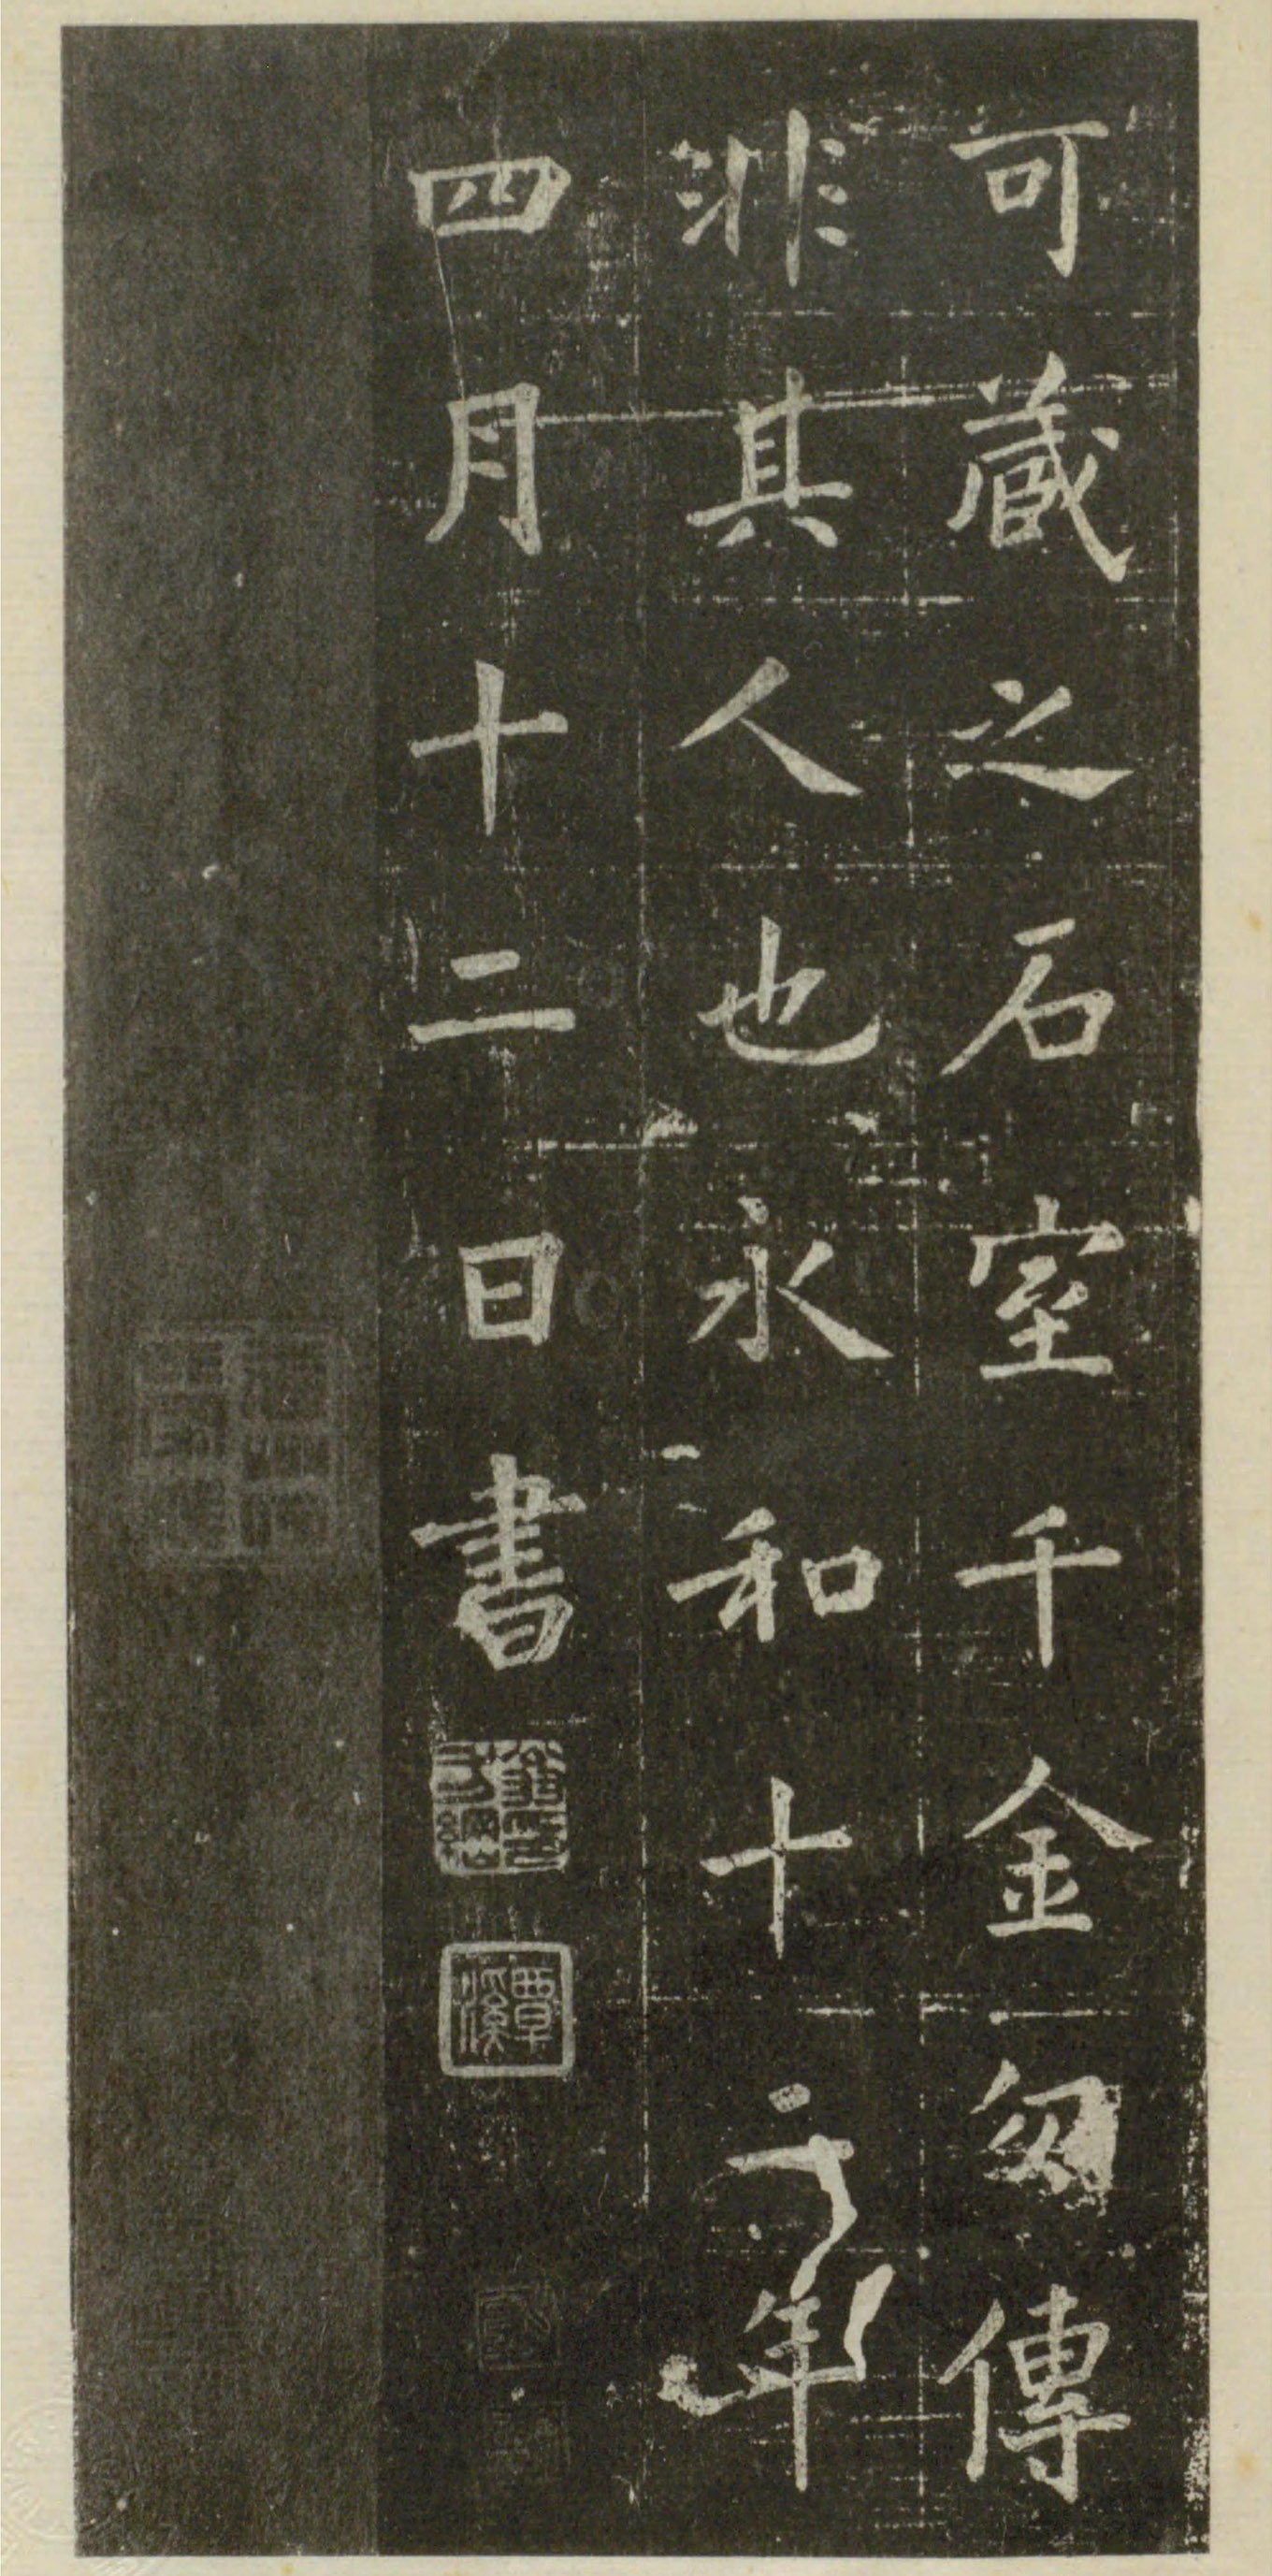 可藏之石室千金勿傳
非其人也永和十二年
四月十二日書
覃溪